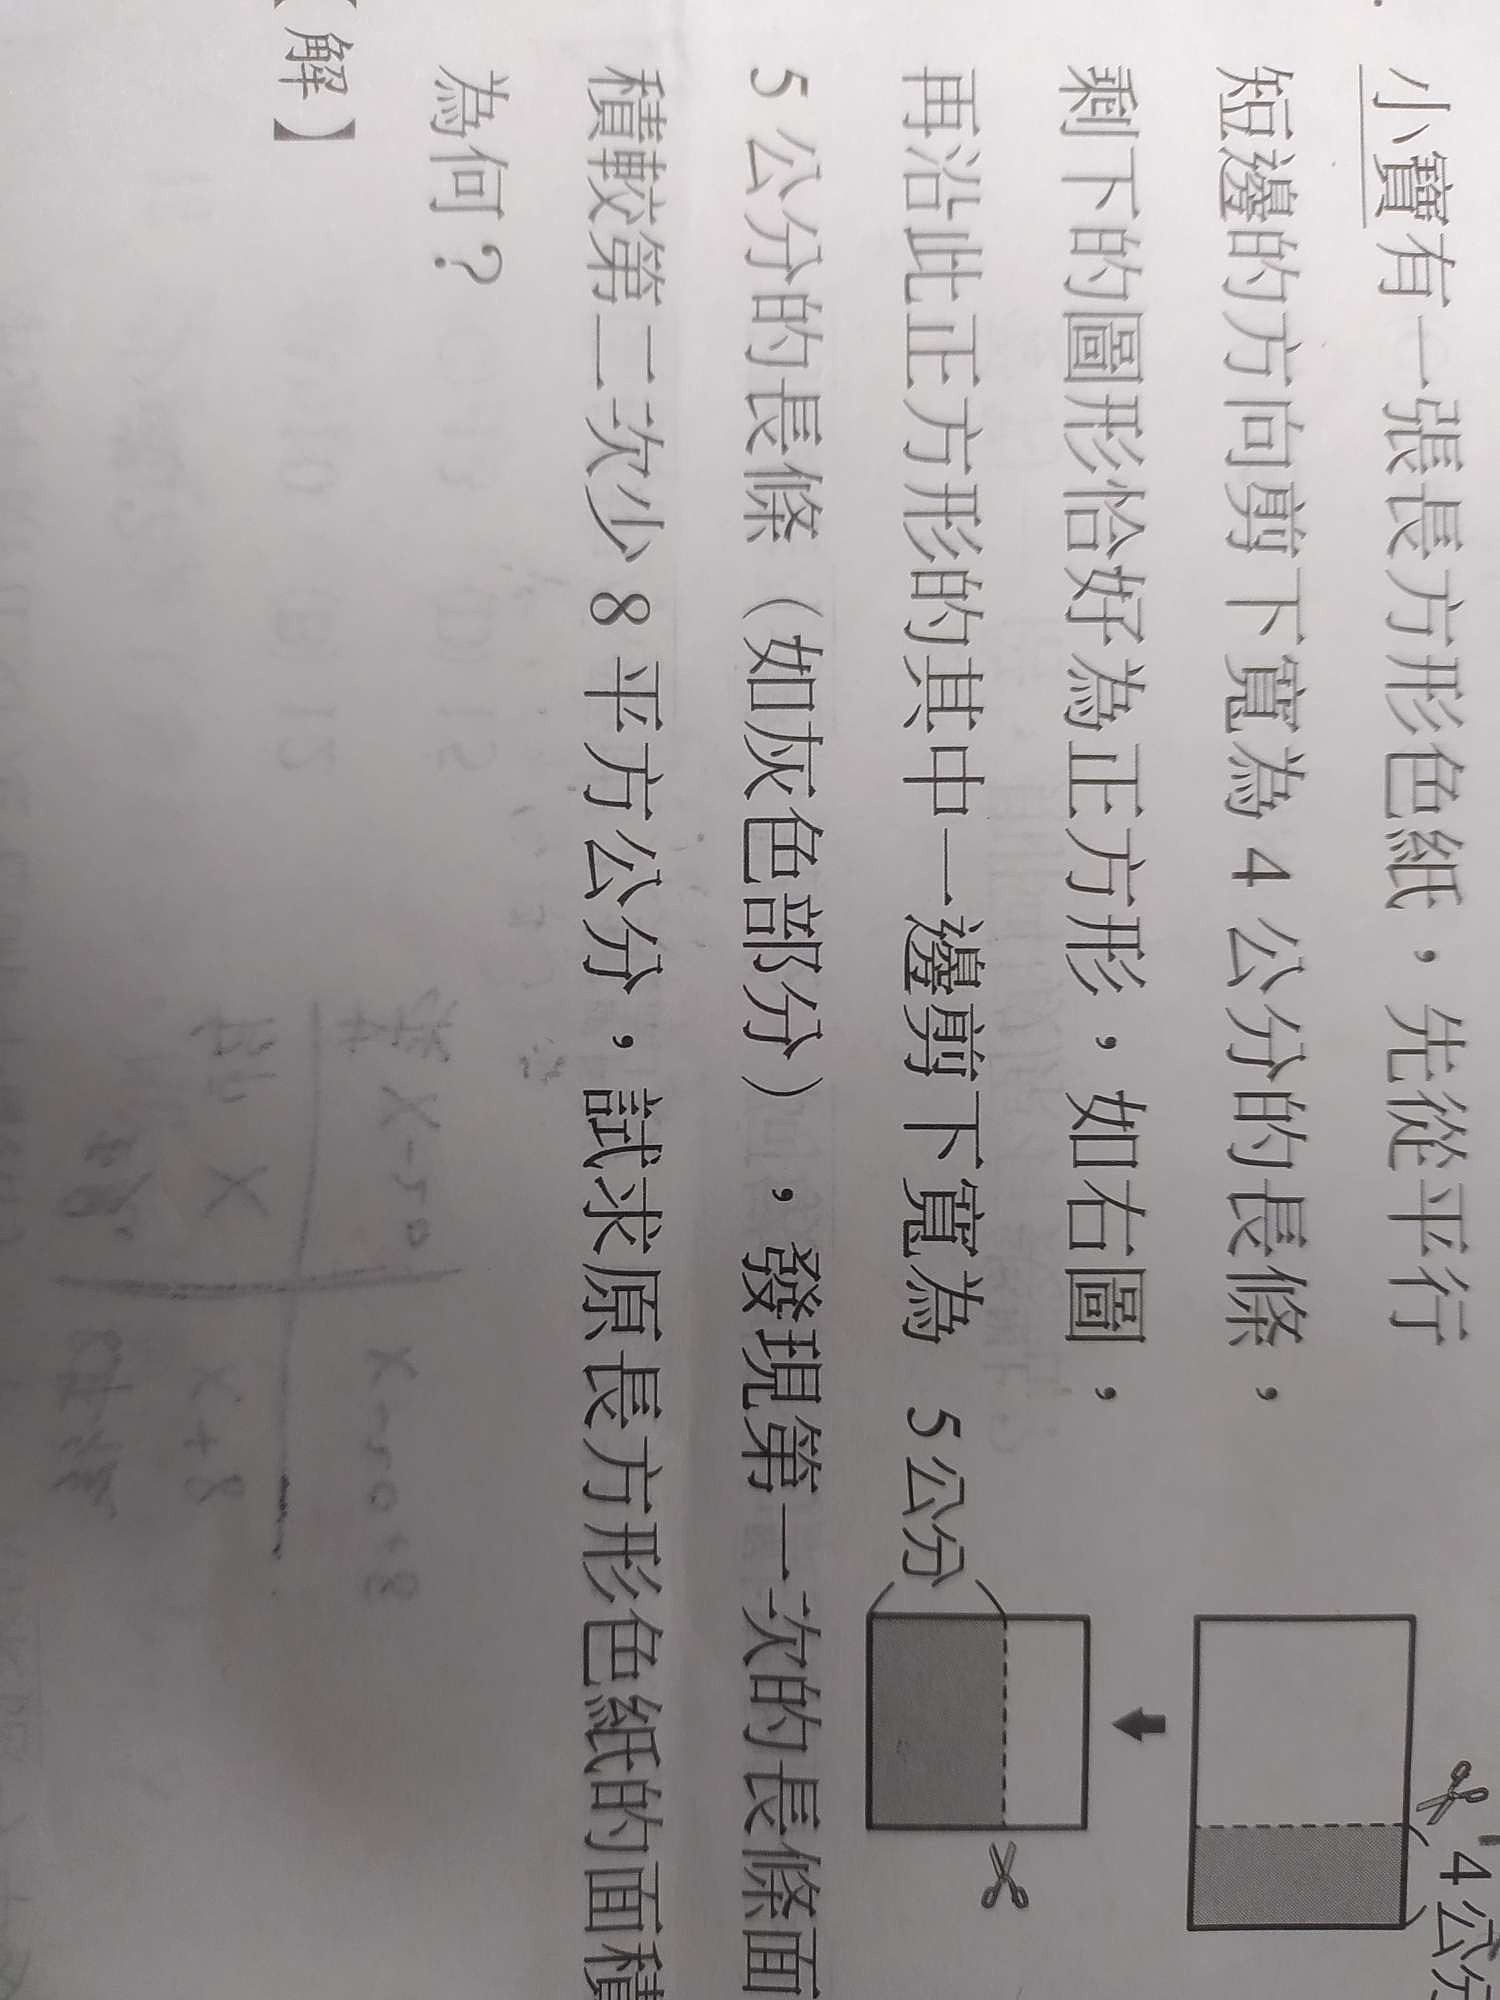 小寶有一張長方形色紙，先從平行
短邊的方向剪下寬為 4 公分的長條，
剩下的圖形恰好為正方形，如右圖，
再沿此正方形的其中一邊剪下寬為
5 公分的長條（如灰色部分），發現第一次的長條面
積較第二次少 8 平方公分，試求原長方形色紙的面積
為何？
【解】
4 公分
5 公分